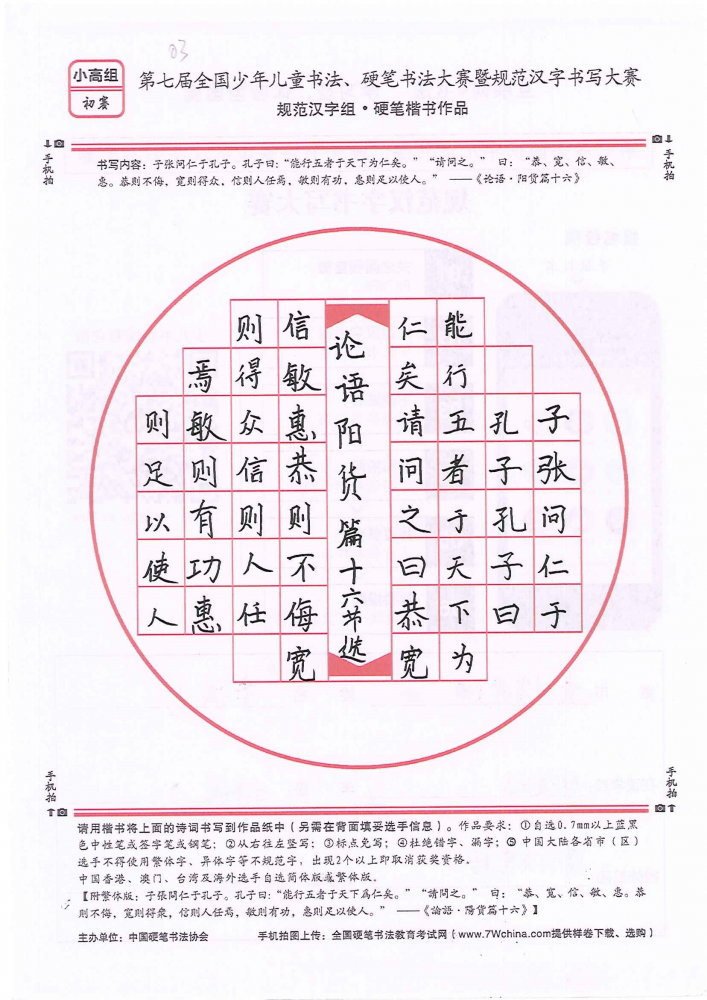 03
小高组
初赛
第七届全国少年儿童书法、硬笔书法大赛暨规范汉字书写大赛
规范汉字组·硬笔楷书作品
手机拍
手机拍
书写内容：子张问仁于孔子。孔子曰：“能行五者于天下为仁矣。”“请问之。”曰：“恭、宽、信、敏、
惠。恭则不侮，宽则得众，信则人任焉，敏则有功，惠则足以使人。”——《论语·阳货篇十六》
子张问仁于
孔子孔子曰
能行五者于天下为
仁矣请问之曰恭宽
论语阳货篇十六节选
信敏惠恭则不侮宽
则得众信则人任
焉敏则有功惠
则足以使人
手机拍
手机拍
请用楷书将上面的诗词书写到作品纸中（另需在背面填妥选手信息）。作品要求：①自选0.7mm以上蓝黑
色中性笔或签字笔或钢笔；②从右往左竖写；③标点免写；④杜绝错字、漏字；⑤中国大陆各省市（区）
选手不得使用繁体字、异体字等不规范字，出现2个以上即取消获奖资格。
中国香港、澳门、台湾及海外选手自选简体版或繁体版。
【附繁体版：子張問仁于孔子。孔子曰：“能行五者于天下爲仁矣。”“請問之。”曰：“恭、寬、信、敏、惠。恭
則不侮，寬則得衆，信則人任焉，敏則有功，惠則足以使人。”——《論語·陽貨篇十六》】
主办单位：中国硬笔书法协会
手机拍图上传：全国硬笔书法教育考试网（www.7Wchina.com提供样卷下载、选购）